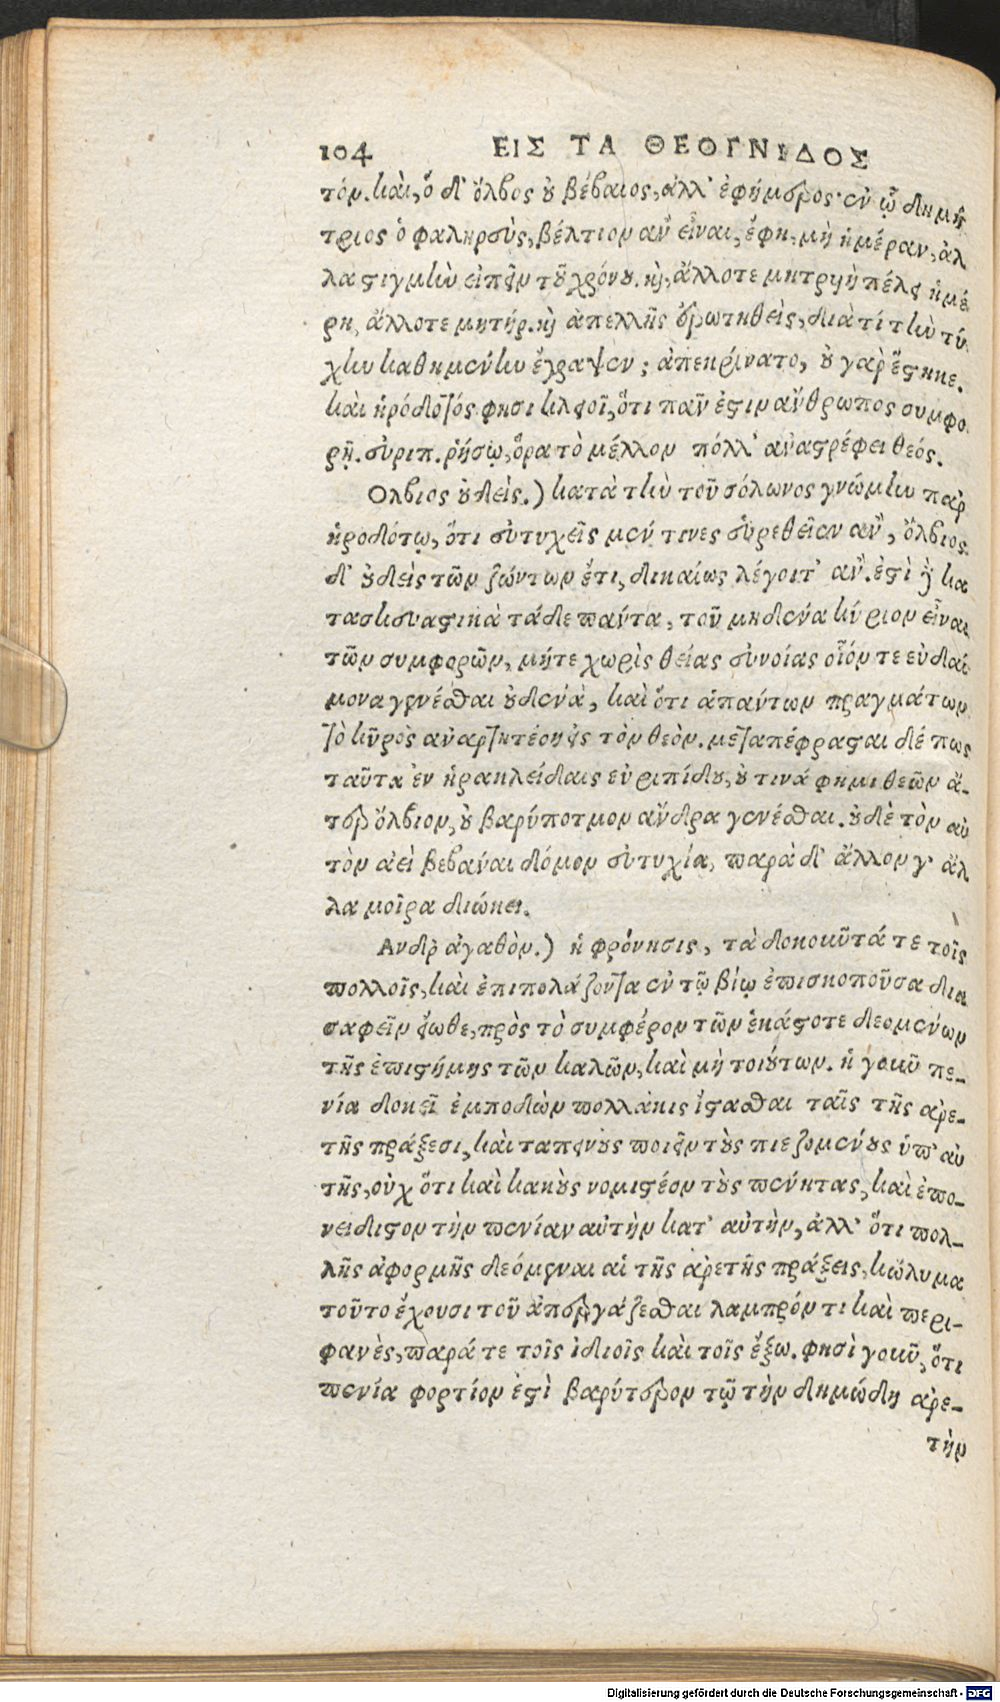 104 ΕΙΣ ΤΑ ΘΕΟΓΝΙΔΟΣ
τόν. καὶ, ὁ δ' ὄλβος οὐ βέβαιος, ἀλλ' ἐφήμερος· ἐν ᾧ δημή
τριος ὁ φαληρεὺς, βέλτιον ἂν εἶναι, ἔφη, μὴ ἡμέραν, ἀλ
λα στιγμὴν εἰπεῖν τοῦ χρόνου. καὶ, ἄλλοτε μητρυιὴ πέλει ἡμέ
ρη, ἄλλοτε μητήρ. καὶ ἀπελλῆς ἐρωτηθεὶς, διὰ τί τὴν τύ
χην καθημένην ἔγραψεν; ἀπεκρίνατο, οὐ γὰρ ἕστηκε.
καὶ ἡρόδοτός φησι κλειοῖ, ὅτι πᾶν ἐστιν ἄνθρωπος συμφο
ρῇ. εὐριπ. ῥήσῳ, ὅρα τὸ μέλλον πόλλ' ἀναστρέφει θεός.
Ολβιος οὐδείς.) κατὰ τὴν τοῦ σόλωνος γνώμην παρ'
ἡροδότῳ, ὅτι εὐτυχεῖς μέν τινες εὑρεθεῖεν ἂν, ὄλβιος
δ' οὐδεὶς τῶν ζώντων ἔτι, δικαίως λέγοιτ' ἄν. ἐστὶ γὰρ κα
τασκευαστικὰ τάδε πάντα, τοῦ μηδένα κύριον εἶναι
τῶν συμφορῶν, μήτε χωρὶς θείας εὐνοίας οἷόν τε εὐδαί
μονα γενέσθαι οὐδένα, καὶ ὅτι ἁπάντων πραγμάτων
τὸ κῦρος ἀναρτητέον εἰς τὸν θεόν. μεταπέφρασται δέ πως
ταῦτα ἐν ἡρακλείδαις εὐριπίδου, οὔ τινά φημι θεῶν ἄ-
τερ ὄλβιον, οὐ βαρύποτμον ἄνδρα γενέσθαι. οὐδὲ τὸν αὐ
τὸν ἀεὶ βεβάναι δόμον εὐτυχία, παρὰ δ' ἄλλον γ' ἄλ
λα μοῖρα διώκει.
Ανδρ' ἀγαθόν.) ἡ φρόνησις, τὰ δοκοῦντά τε τοῖς
πολλοῖς, καὶ ἐπιπολάζοντα ἐν τῷ βίῳ ἐπισκοποῦσα δια
σαφεῖν εἴωθε, πρὸς τὸ συμφέρον τῶν ἑκάστοτε δεομένων
τῆς ἐπιστήμης τῶν καλῶν, καὶ μὴ τοιούτων. ἡ γοῦν πε-
νία δοκεῖ ἐμποδὼν πολλάκις ἵστασθαι ταῖς τῆς ἀρε-
τῆς πράξεσι, καὶ ταπεινοὺς ποιεῖν τοὺς πιεζομένους ὑπ' αὐ
τῆς, οὐχ ὅτι καὶ κακοὺς νομιστέον τοὺς πένητας, καὶ ἐπο-
νείδιστον τὴν πενίαν αὐτὴν κατ' αὐτὴν, ἀλλ' ὅτι πολ-
λῆς ἀφορμῆς δεόμεναι αἱ τῆς ἀρετῆς πράξεις, κώλυμα
τοῦτο ἔχουσι τοῦ ἀπεργάζεσθαι λαμπρόν τι καὶ περι-
φανὲς, παρά τε τοῖς ἰδίοις καὶ τοῖς ἔξω. φησὶ γοῦν, ὅτι
πενία φορτίον ἐστὶ βαρύτερον τῷ τὴν δημώδη ἀρε-
τὴν
Digitalisierung gefördert durch die Deutsche Forschungsgemeinschaft - DFG